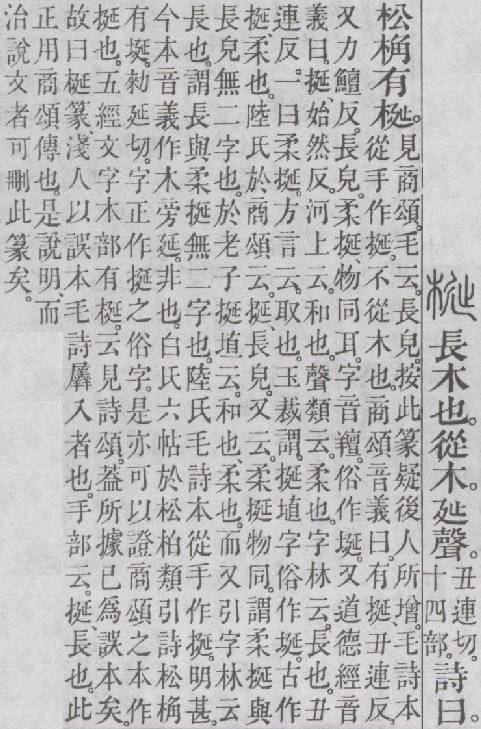 梴 長木也。從木延聲。丑連切。十四部。詩曰。
松桷有梴。見商頌。毛云。長皃。按此篆疑後人所增。毛詩本
從手作挻。不從木也。商頌音義曰。有挻、丑連反。
又力鱣反。長皃。柔挻、物同耳。字音羶。俗作埏。又道德經音
義曰。挻、始然反。河上云。和也。聲類云。柔也。字林云。長也。丑
連反。一曰柔挻。方言云。取也。玉裁謂。挻埴字俗作埏。古作
挻。柔也。陸氏於商頌云。挻、長皃。又云。柔挻物同。謂柔挻與
長皃無二字也。於老子挻埴云。和也、柔也。而又引字林云
長也。謂長與柔挻無二字也。陸氏毛詩本從手作挻。明甚。
今本音義作木旁延。非也。白氏六帖於松柏類引詩松桷
有埏。勑延切。字正作挻之俗字。是亦可以證商頌之本作
挻也。五經文字木部有梴。云見詩頌。葢所據已爲誤本矣。
故曰梴篆淺人以誤本毛詩羼入者也。手部云。挻、長也。此
正用商頌傳也。是說明、而
治說文者可刪此篆矣。